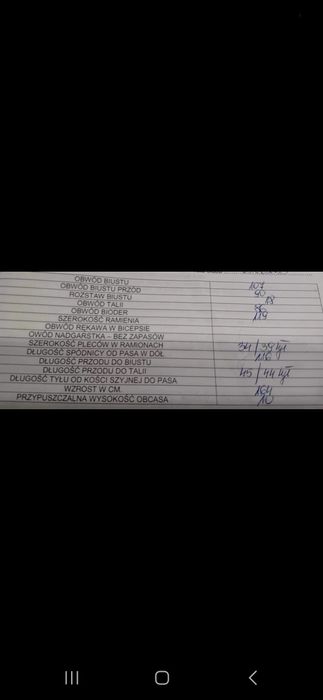 OBWÓD BIUSTU 107
OBWÓD BIUSTU PRZÓD 90
ROZSTAW BIUSTU 18
OBWÓD TALII
OBWÓD BIODER 119
SZEROKOŚĆ RAMIENIA
OBWÓD RĘKAWA W BICEPSIE
OWÓD NADGARSTKA – BEZ ZAPASÓW
SZEROKOŚĆ PLECÓW W RAMIONACH 34/39
DŁUGOŚĆ SPÓDNICY OD PASA W DÓŁ 116
DŁUGOŚĆ PRZODU DO BIUSTU
DŁUGOŚĆ PRZODU DO TALII 45/44
DŁUGOŚĆ TYŁU OD KOŚCI SZYJNEJ DO PASA
WZROST W CM. 164
PRZYPUSZCZALNA WYSOKOŚĆ OBCASA 10